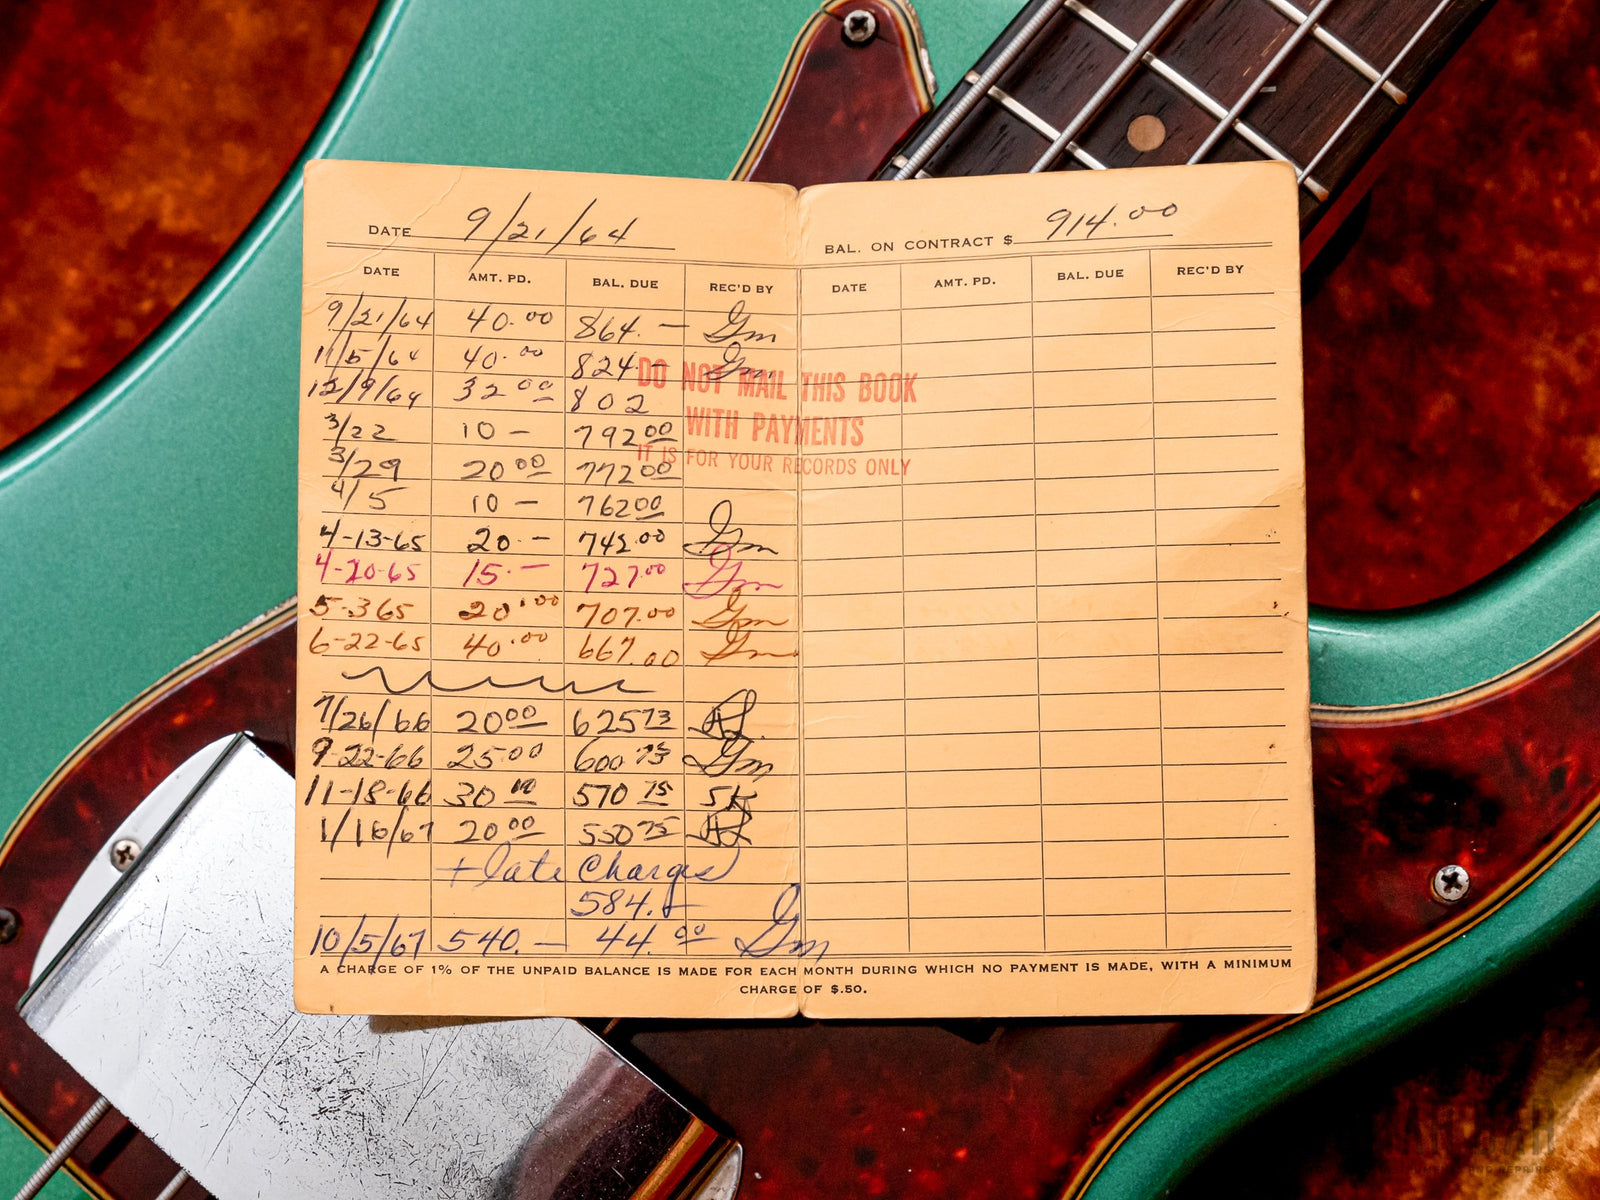 DATE 9/21/64
BAL. ON CONTRACT $ 914.00
DATE AMT. PD. BAL. DUE REC'D BY
DATE AMT. PD. BAL. DUE REC'D BY
9/21/64 40.00 864.— Gm
11/5/64 40.00 824.— Gm
12/9/64 32 00 802
3/22 10 — 792 00
3/29 20 00 772 00
4/5 10 — 762 00
4-13-65 20.— 742.00 Gm
4-20-65 15.— 727.00 Gm
5-3 65 20.00 707.00 Gm
6-22-65 40.00 667.00 Gm
7/26/66 20 00 625 73
9-22-66 25.00 600 75 Gm
11-18-66 30 00 570 75 SK
1/16/67 20 00 550 75
+ late Charges
584.—
10/5/67 540.— 44.00 Gm
DO NOT MAIL THIS BOOK
WITH PAYMENTS
IT IS FOR YOUR RECORDS ONLY
A CHARGE OF 1% OF THE UNPAID BALANCE IS MADE FOR EACH MONTH DURING WHICH NO PAYMENT IS MADE, WITH A MINIMUM
CHARGE OF $.50.